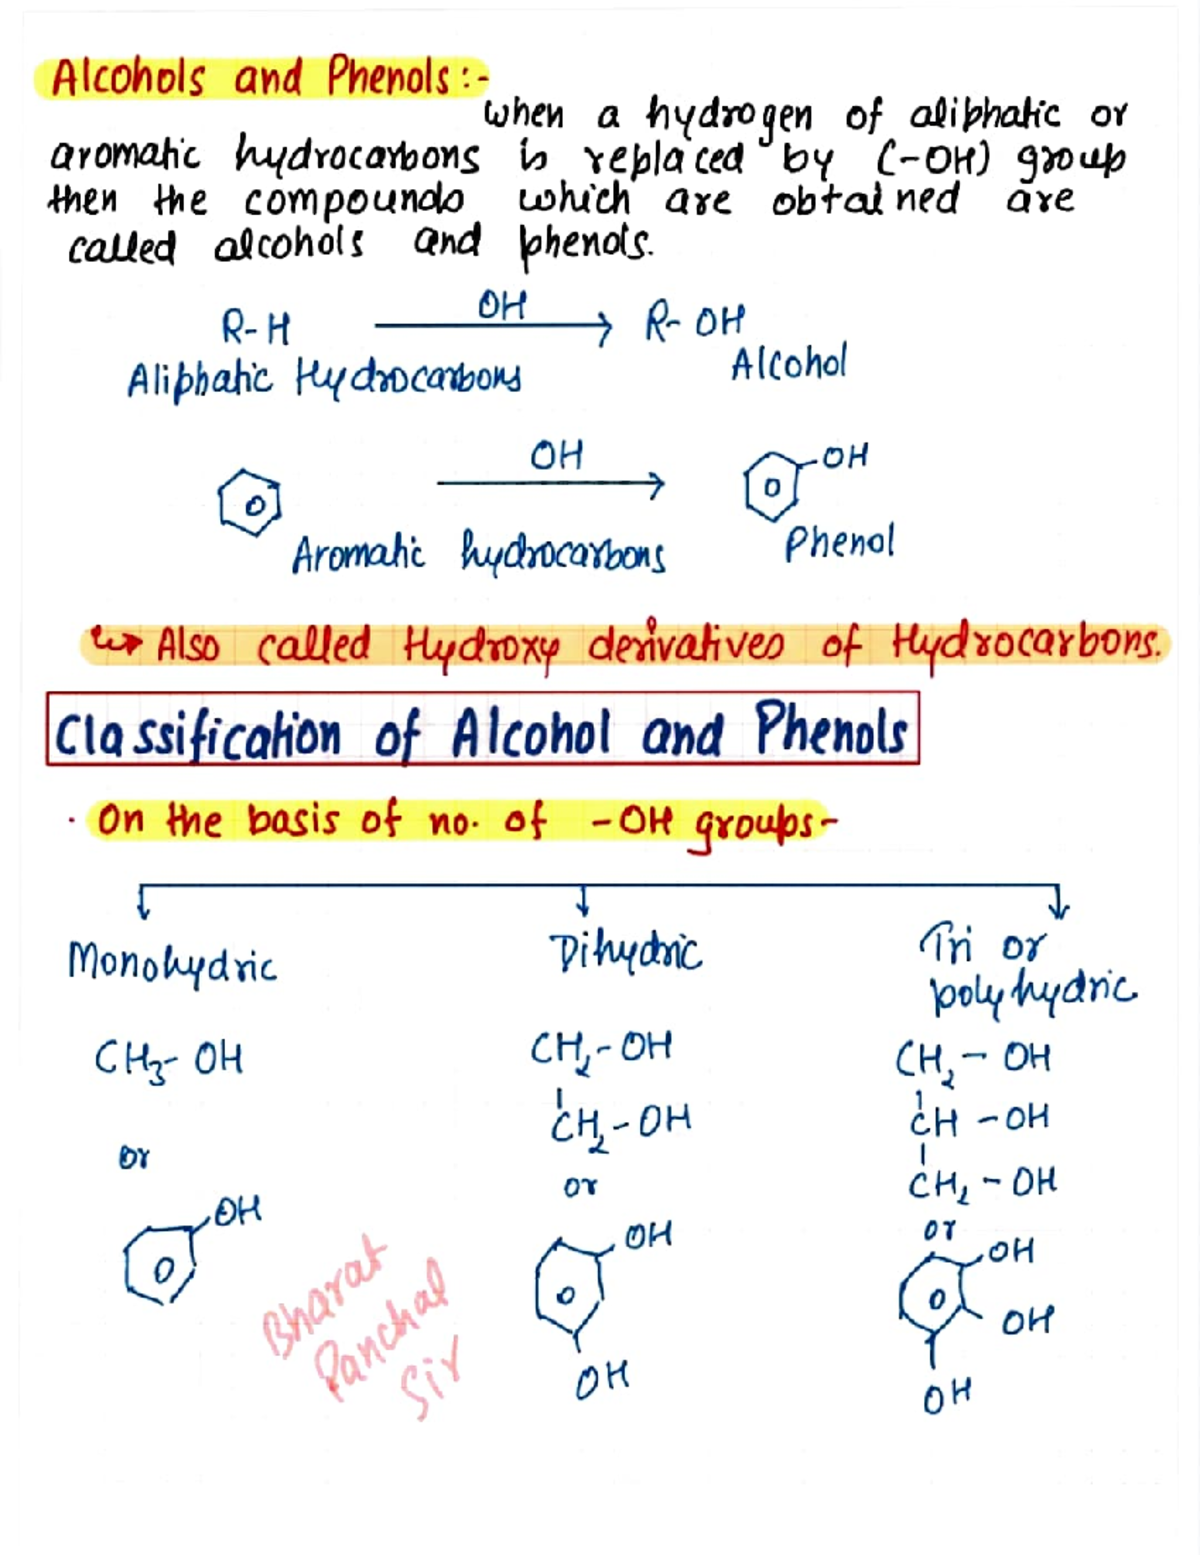 Alcohols and Phenols:-
when a hydrogen of aliphatic or
aromatic hydrocarbons is replaced by (-OH) group
then the compounds which are obtained are
called alcohols and phenols.
R-H OH R-OH
Aliphatic Hydrocarbons Alcohol
OH OH
Aromatic hydrocarbons Phenol
Also called Hydroxy derivatives of Hydrocarbons.
Classification of Alcohol and Phenols
· On the basis of no. of -OH groups-
Monohydric Dihydric Tri or
polyhydric
CH₃-OH CH₂-OH CH₂-OH
CH₂-OH CH-OH
or or CH₂-OH
or
OH OH OH
OH
OH OH
Bharat
Panchal
Sir